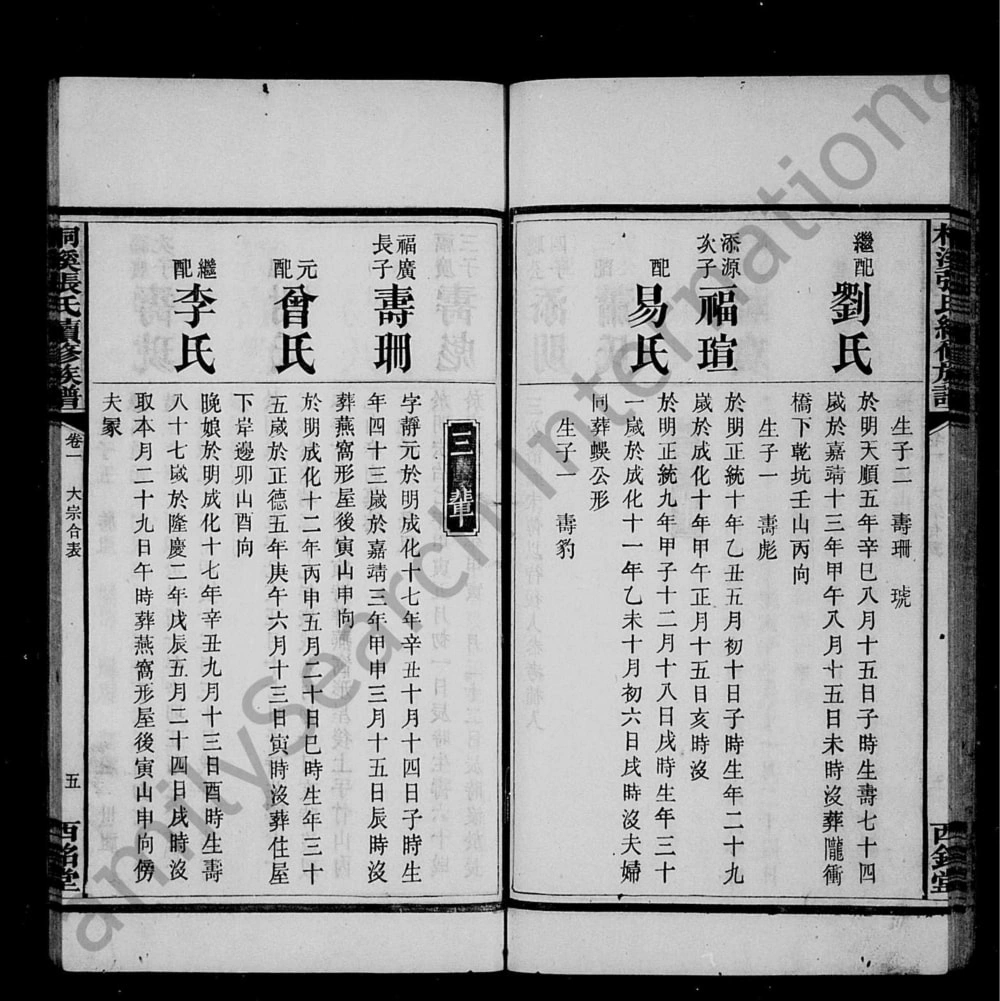 繼配 劉氏
於明天順五年辛巳八月十五日子時生壽七十四
歲於嘉靖十三年甲午八月十五日未時沒葬隴衝
橋下乾坑壬山丙向
生子二 壽珊 琥
添源次子 福瑄
於明正統十年乙丑五月初十日子時生年二十九
歲於成化十年甲午正月十五日亥時沒
生子一 壽彪
配 易氏
於明正統九年甲子十二月十八日戌時生年三十
一歲於成化十一年乙未十月初六日戌時沒夫婦
同葬蜈公形
生子一 壽豹
三 輩
福廣長子 壽珊
字靜元於明成化十七年辛丑十月十四日子時生
年四十三歲於嘉靖三年甲申三月十五日辰時沒
葬燕窩形屋後寅山申向
元配 曾氏
於明成化十二年丙申五月二十日巳時生年三十
五歲於正德五年庚午六月十三日寅時沒葬住屋
下岸邊卯山酉向
繼配 李氏
晚娘於明成化十七年辛丑九月十三日酉時生壽
八十七歲於隆慶二年戊辰五月二十四日戌時沒
取本月二十九日午時葬燕窩形屋後寅山申向傍
夫冢
桐溪張氏續修族譜
卷一 大宗合表
五
西銘堂
FamilySearch International